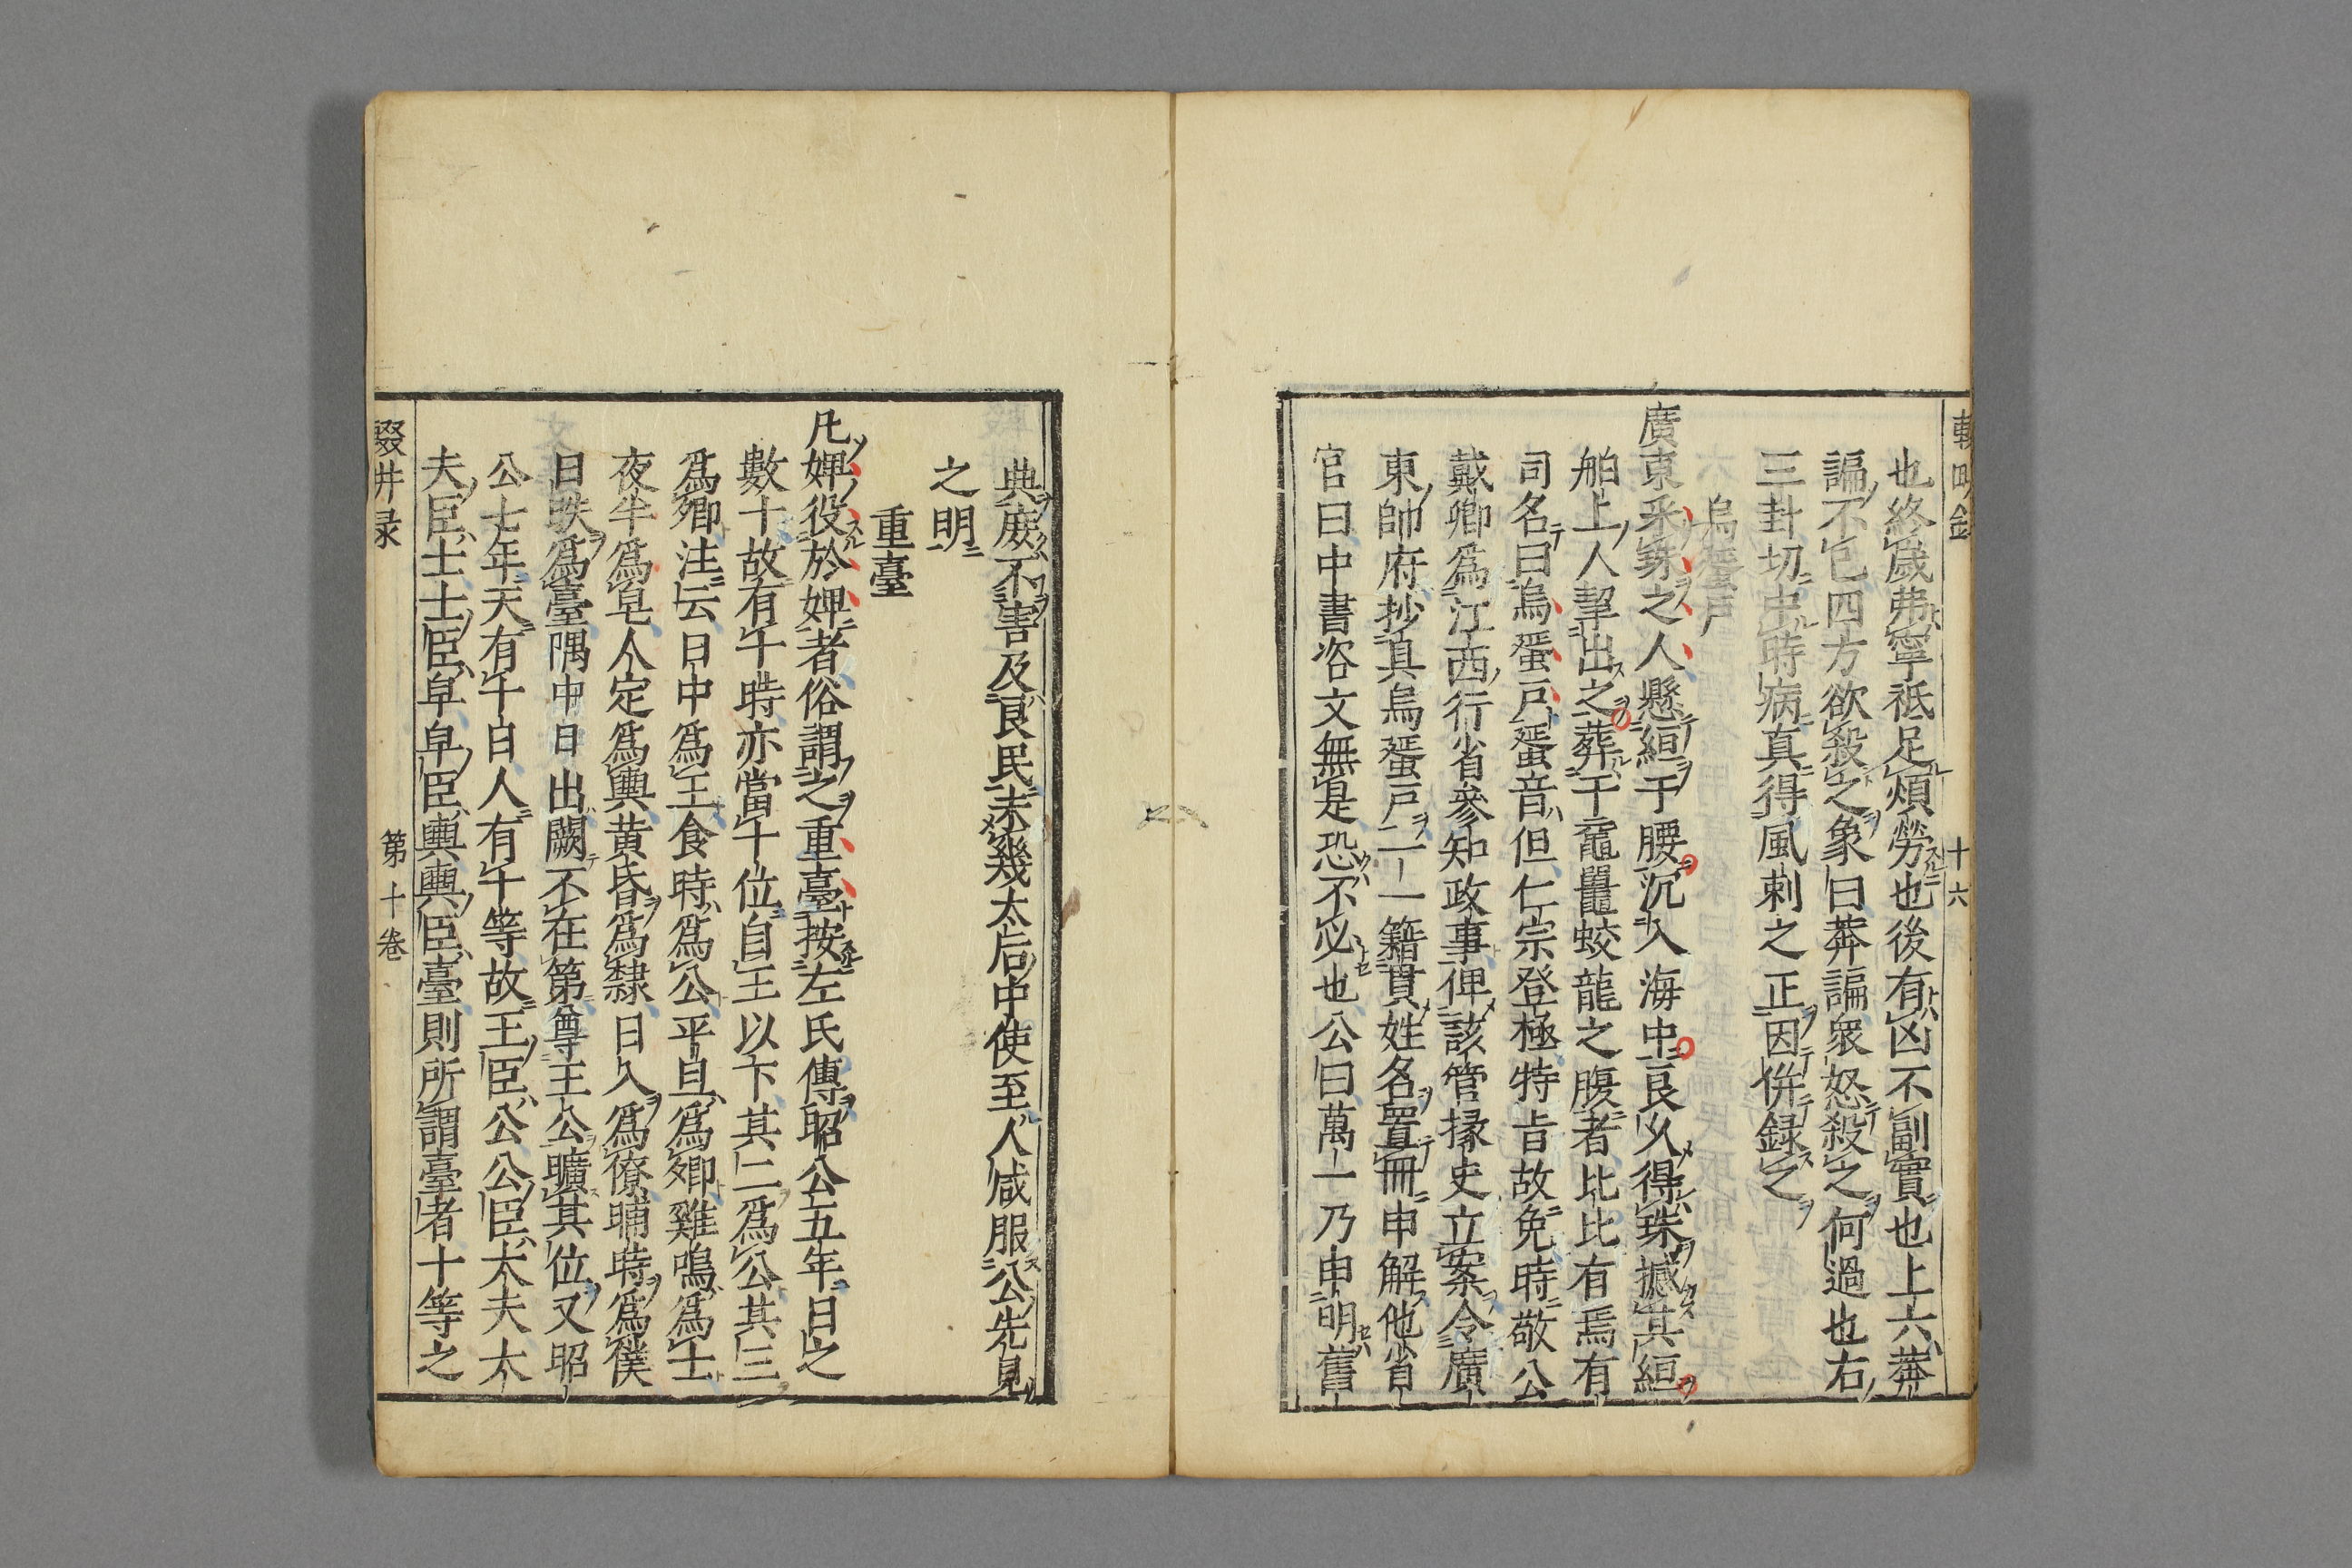 十六
也終歲弗寧祗足煩勞也後有凶不副實也上六莽
諞不已四方欲殺之象曰莽諞衆怒殺之何過也右
三卦切中時病真得風刺之正因併録之
烏蜑戶
廣東采珠之人懸絙于腰沉入海中良久得珠撼其絙
舶上人挈出之葬于黿鼉蛟龍之腹者比比有焉有
司名曰烏蜑戶蜑音但仁宗登極特旨故免時敬公
戴卿爲江西行省參知政事俾該管掾史立案令廣
東帥府抄具烏蜑戶一一籍貫姓名置冊申解他省
官曰中書咨文無是恐不必也公曰萬一乃申明舊
典庻不害及良民未幾太后中使至人咸服公先見
之明
重臺
凡婢役於婢者俗謂之重臺按左氏傳昭公五年日之
數十故有十時亦當十位自王以下其二爲公其三
爲卿注云日中爲王食時爲公平旦爲卿雞鳴爲士
夜半爲皂人定爲輿黄昏爲隸日入爲僚晡時爲僕
日昳爲臺隅中日出闕不在第尊王公曠其位又昭
公七年天有十日人有十等故王臣公公臣大夫大
夫臣士士臣皁皁臣輿輿臣臺則所謂臺者十等之
輟畊录
第十卷